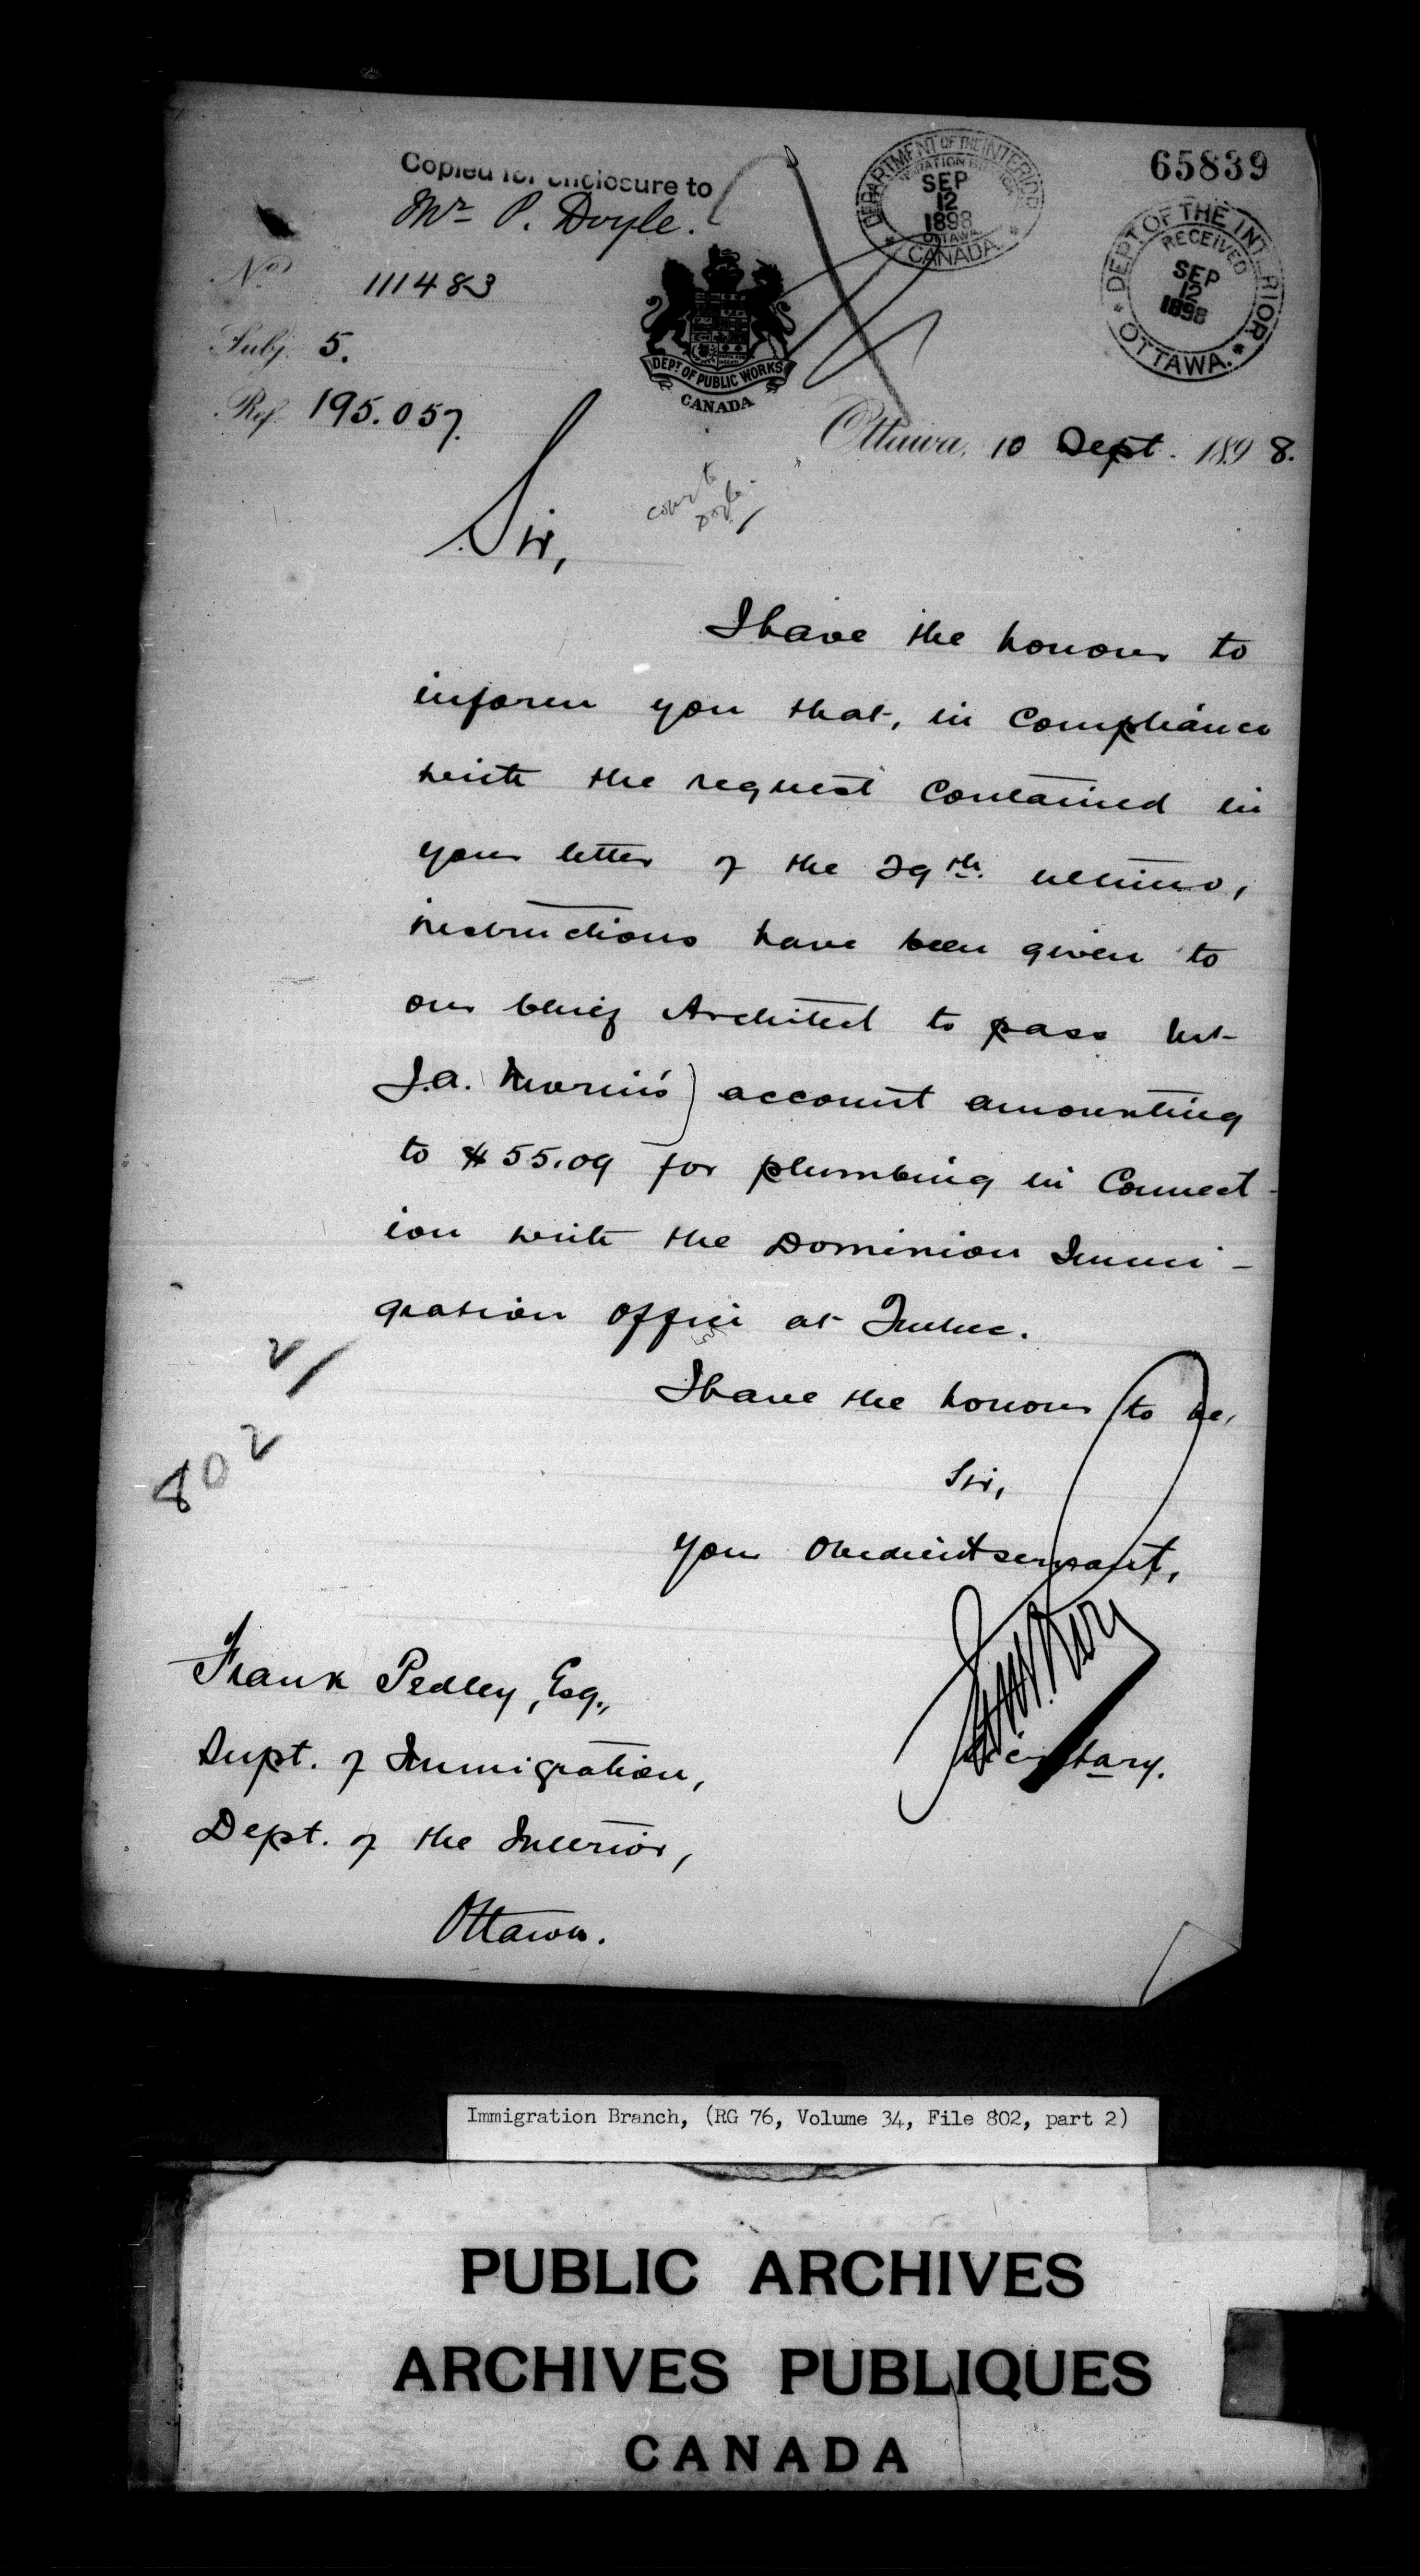 65839
Copied for enclosure to
Mr. P. Doyle.
DEPARTMENT OF THE INTERIOR
SEP
12
1898
OTTAWA
CANADA
DEPT. OF THE INTERIOR
RECEIVED
SEP
12
1898
OTTAWA.
No. 111483
Subj. 5.
Ref. 195.057.
DEPT. OF PUBLIC WORKS
CANADA
Ottawa, 10 Sept. 1898.
Sir,
Doyle
I have the honour to
inform you that, in compliance
with the request contained in
your letter of the 29th. ultimo,
instructions have been given to
our Chief Architect to pass Mr
J.A. Morin's account amounting
to $55.09 for plumbing in connect-
ion with the Dominion Immi-
gration office at Quebec.
2/
I have the honour to be,
402
Sir,
Your obedient servant,
Secretary.
Frank Pedley, Esq.,
Supt. of Immigration,
Dept. of the Interior,
Ottawa.
Immigration Branch, (RG 76, Volume 34, File 802, part 2)
PUBLIC ARCHIVES
ARCHIVES PUBLIQUES
CANADA